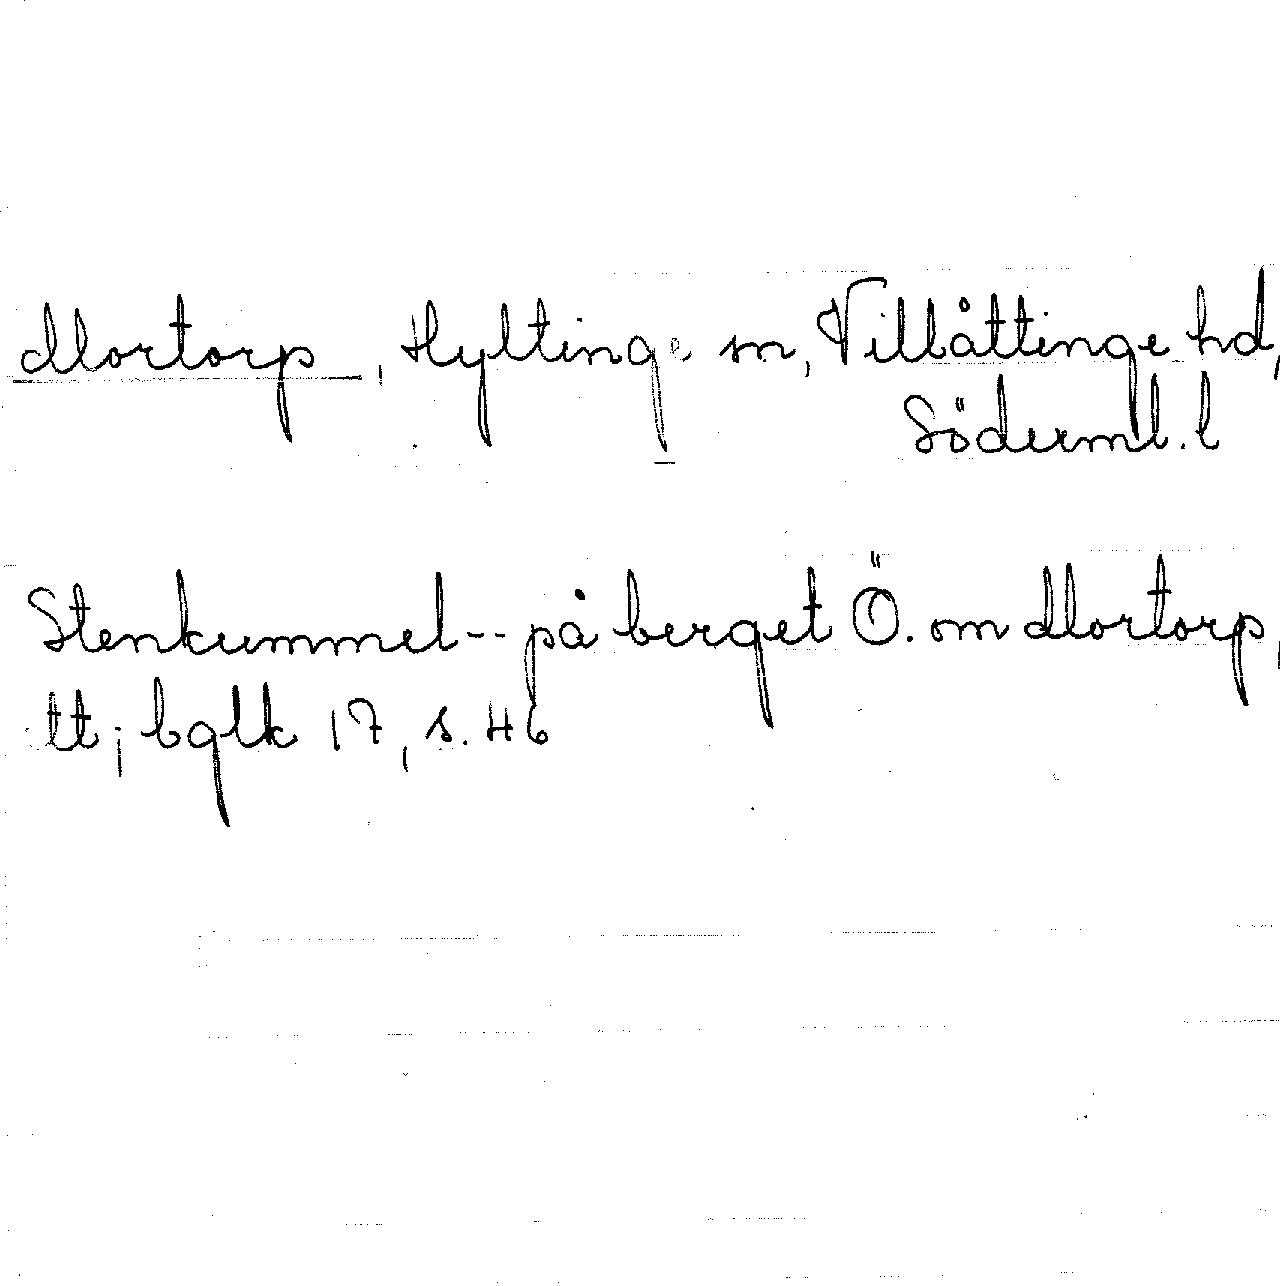 Mortorp, Hyltinge sn, Villåttinge hd,
Söderml. l
Stenkummel -- på berget Ö. om Mortorp,
tt; bglk 17, s. 46